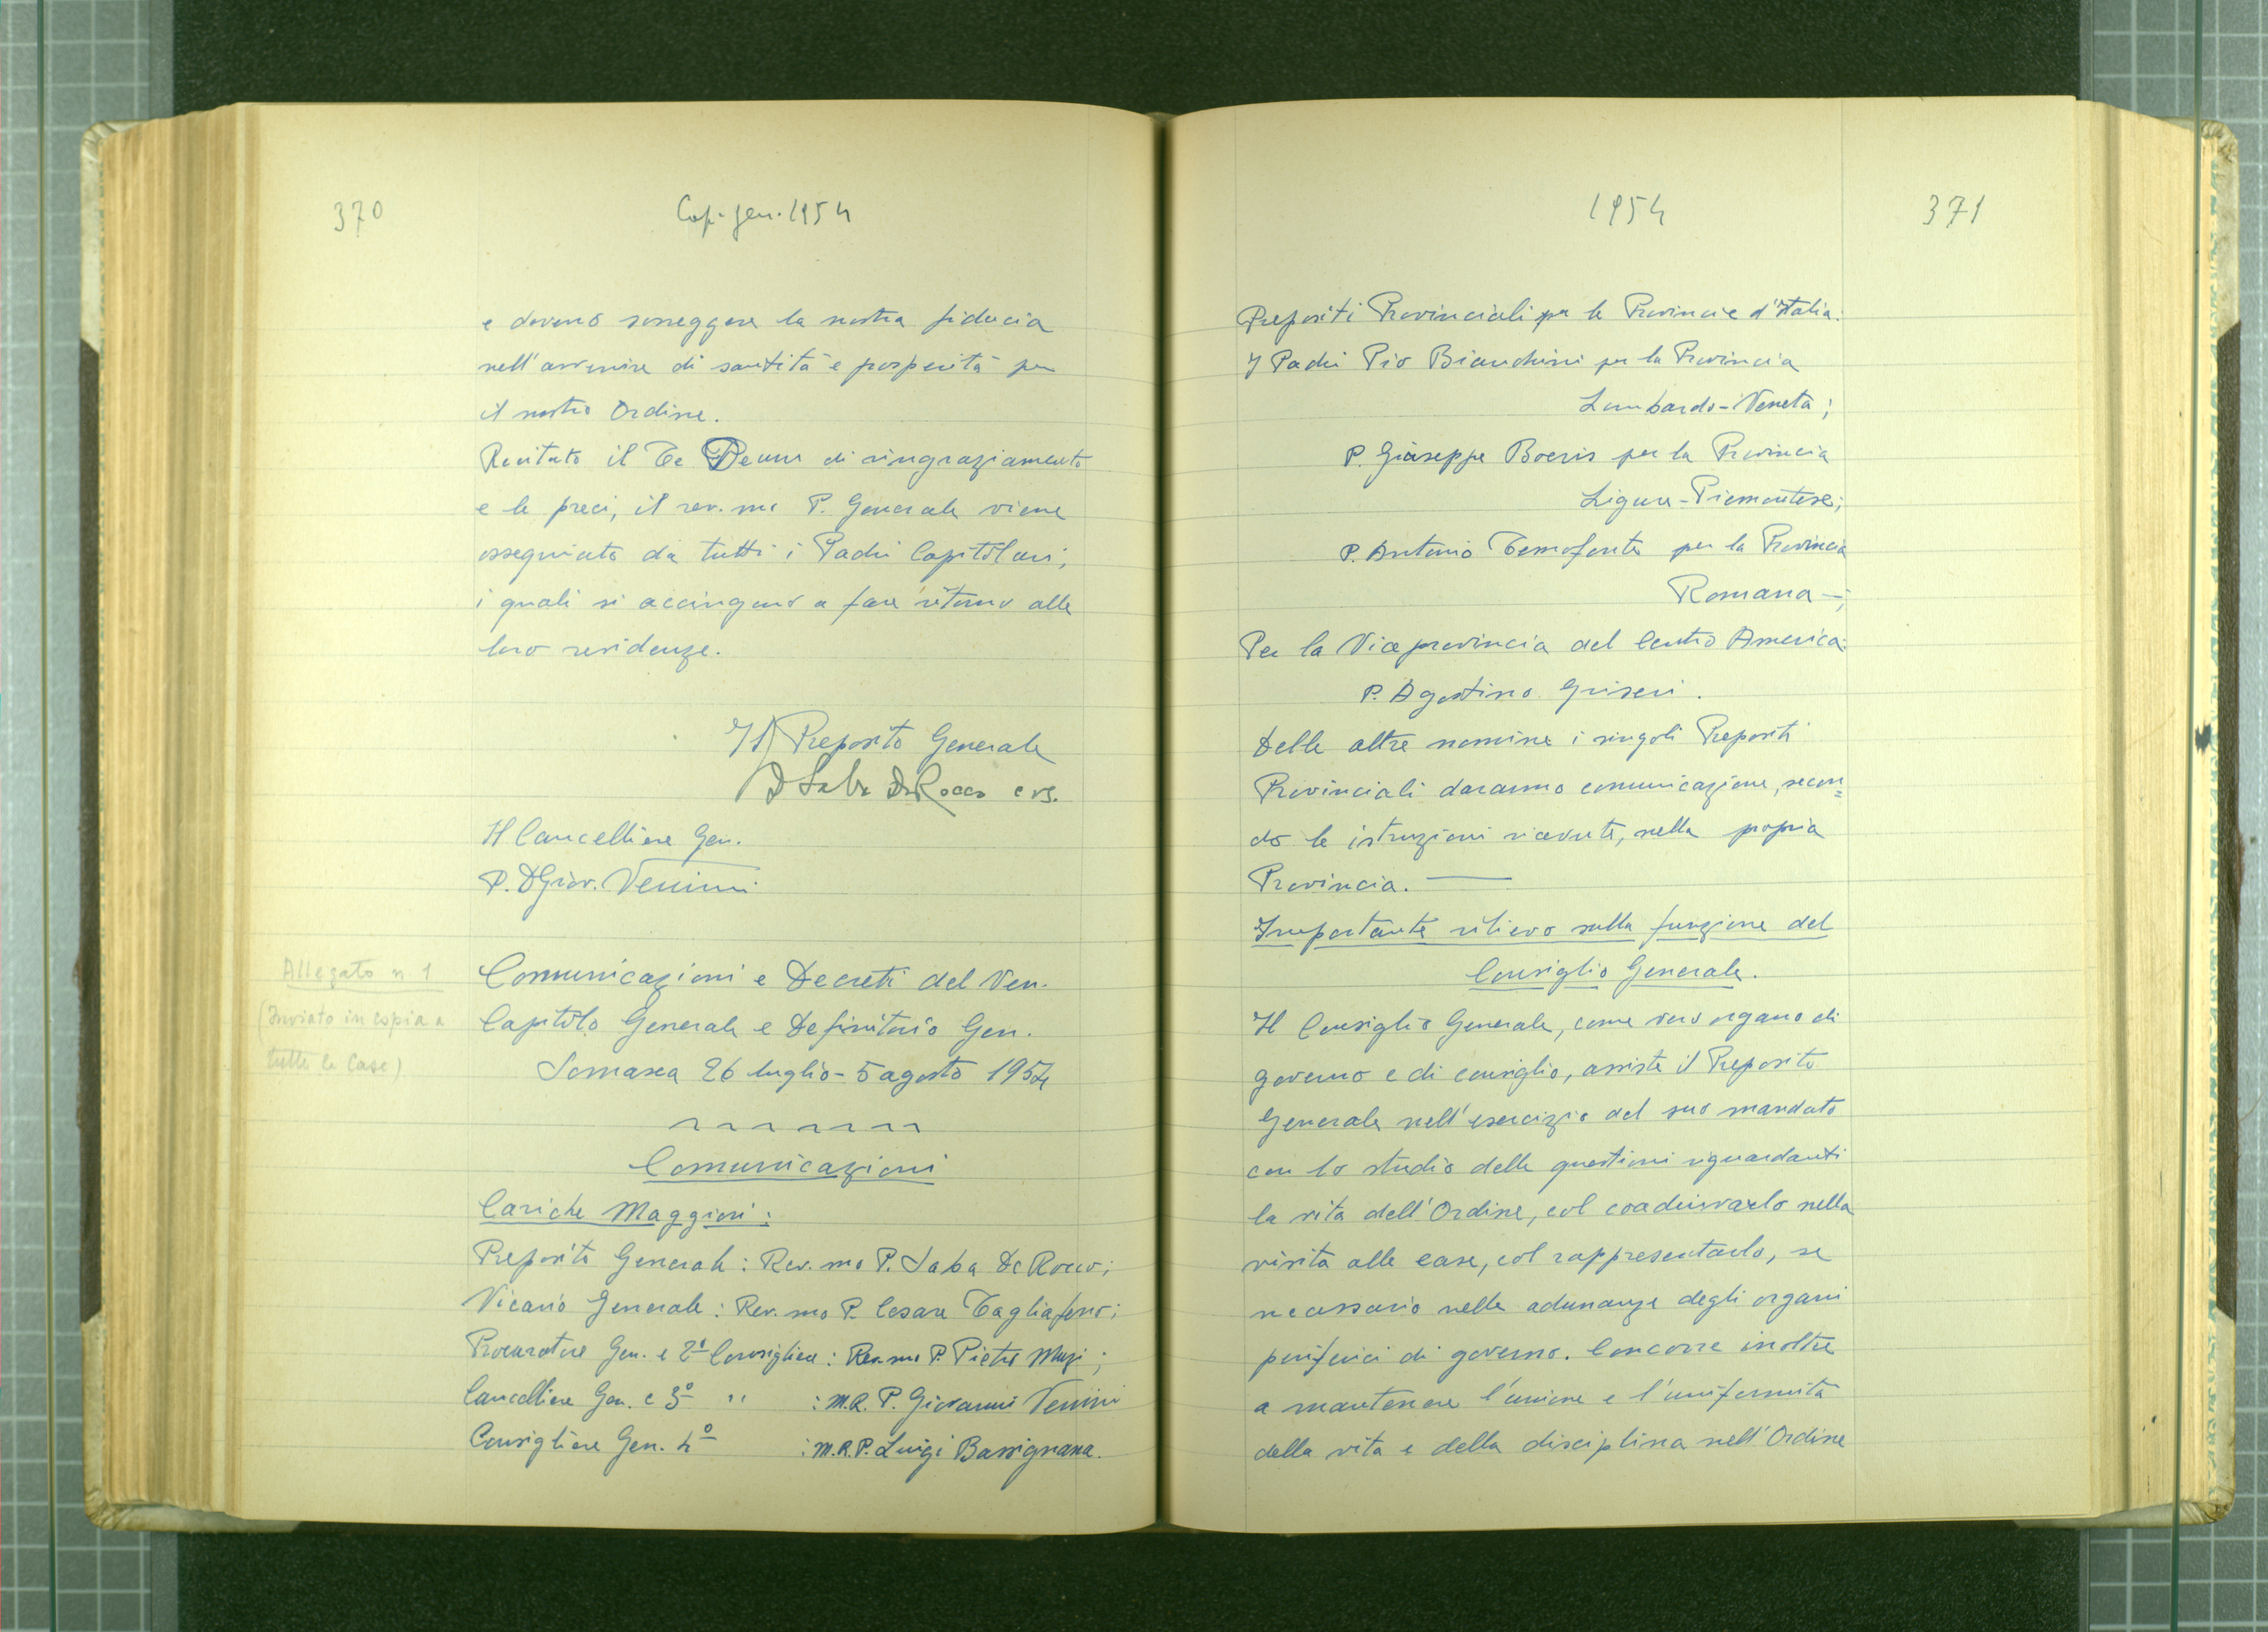 370
Cap. gen. 1954
e devono sorreggere la nostra fiducia
nell'avvenire di santità e prosperità per
il nostro Ordine.
Recitato il Te Deum di ringraziamento
e le preci, il rev.mo P. Generale viene
ossequiato da tutti i Padri Capitolari,
i quali si accingono a fare ritorno alle
loro residenze.
Il Preposito Generale
D Saba De Rocco crs.
Il Cancelliere Gen.
P. D Giov. Venini
Allegato n 1
(Inviato in copia a
tutte le Case)
Comunicazioni e Decreti del Ven.
Capitolo Generale e Definitorio Gen.
Somasca 26 luglio - 5 agosto 1954
Comunicazioni
Cariche Maggiori:
Preposito Generale: Rev.mo P. Saba De Rocco;
Vicario Generale: Rev.mo P. Cesare Tagliaferro;
Procuratore Gen. e 2° Consigliere: Rev.mo P. Pietro Muzi;
Cancelliere Gen. e 3° " : M.R. P. Giovanni Venini
Consigliere Gen. 4° : M.R.P. Luigi Bassignana.
1954
371
Prepositi Provinciali per le Provincie d'Italia:
I Padri Pio Bianchini per la Provincia
Lombardo-Veneta;
P. Giuseppe Boeris per la Provincia
Ligure-Piemontese;
P. Antonio Temofonte per la Provincia
Romana -;
Per la Viceprovincia del Centro America:
P. Agostino Griseri.
Delle altre nomine i singoli Prepositi
Provinciali daranno comunicazione, secon=
do le istruzioni ricevute, nella propria
Provincia. -
Importante rilievo sulla funzione del
Consiglio Generale.
Il Consiglio Generale, come vero organo di
governo e di consiglio, assiste il Preposito
Generale nell'esercizio del suo mandato
con lo studio delle questioni riguardanti
la vita dell'Ordine, col coadiuvarlo nella
visita alle case, col rappresentarlo, se
necessario nelle adunanze degli organi
periferici di governo. Concorre inoltre
a mantenere l'unione e l'uniformità
della vita e della disciplina nell'Ordine